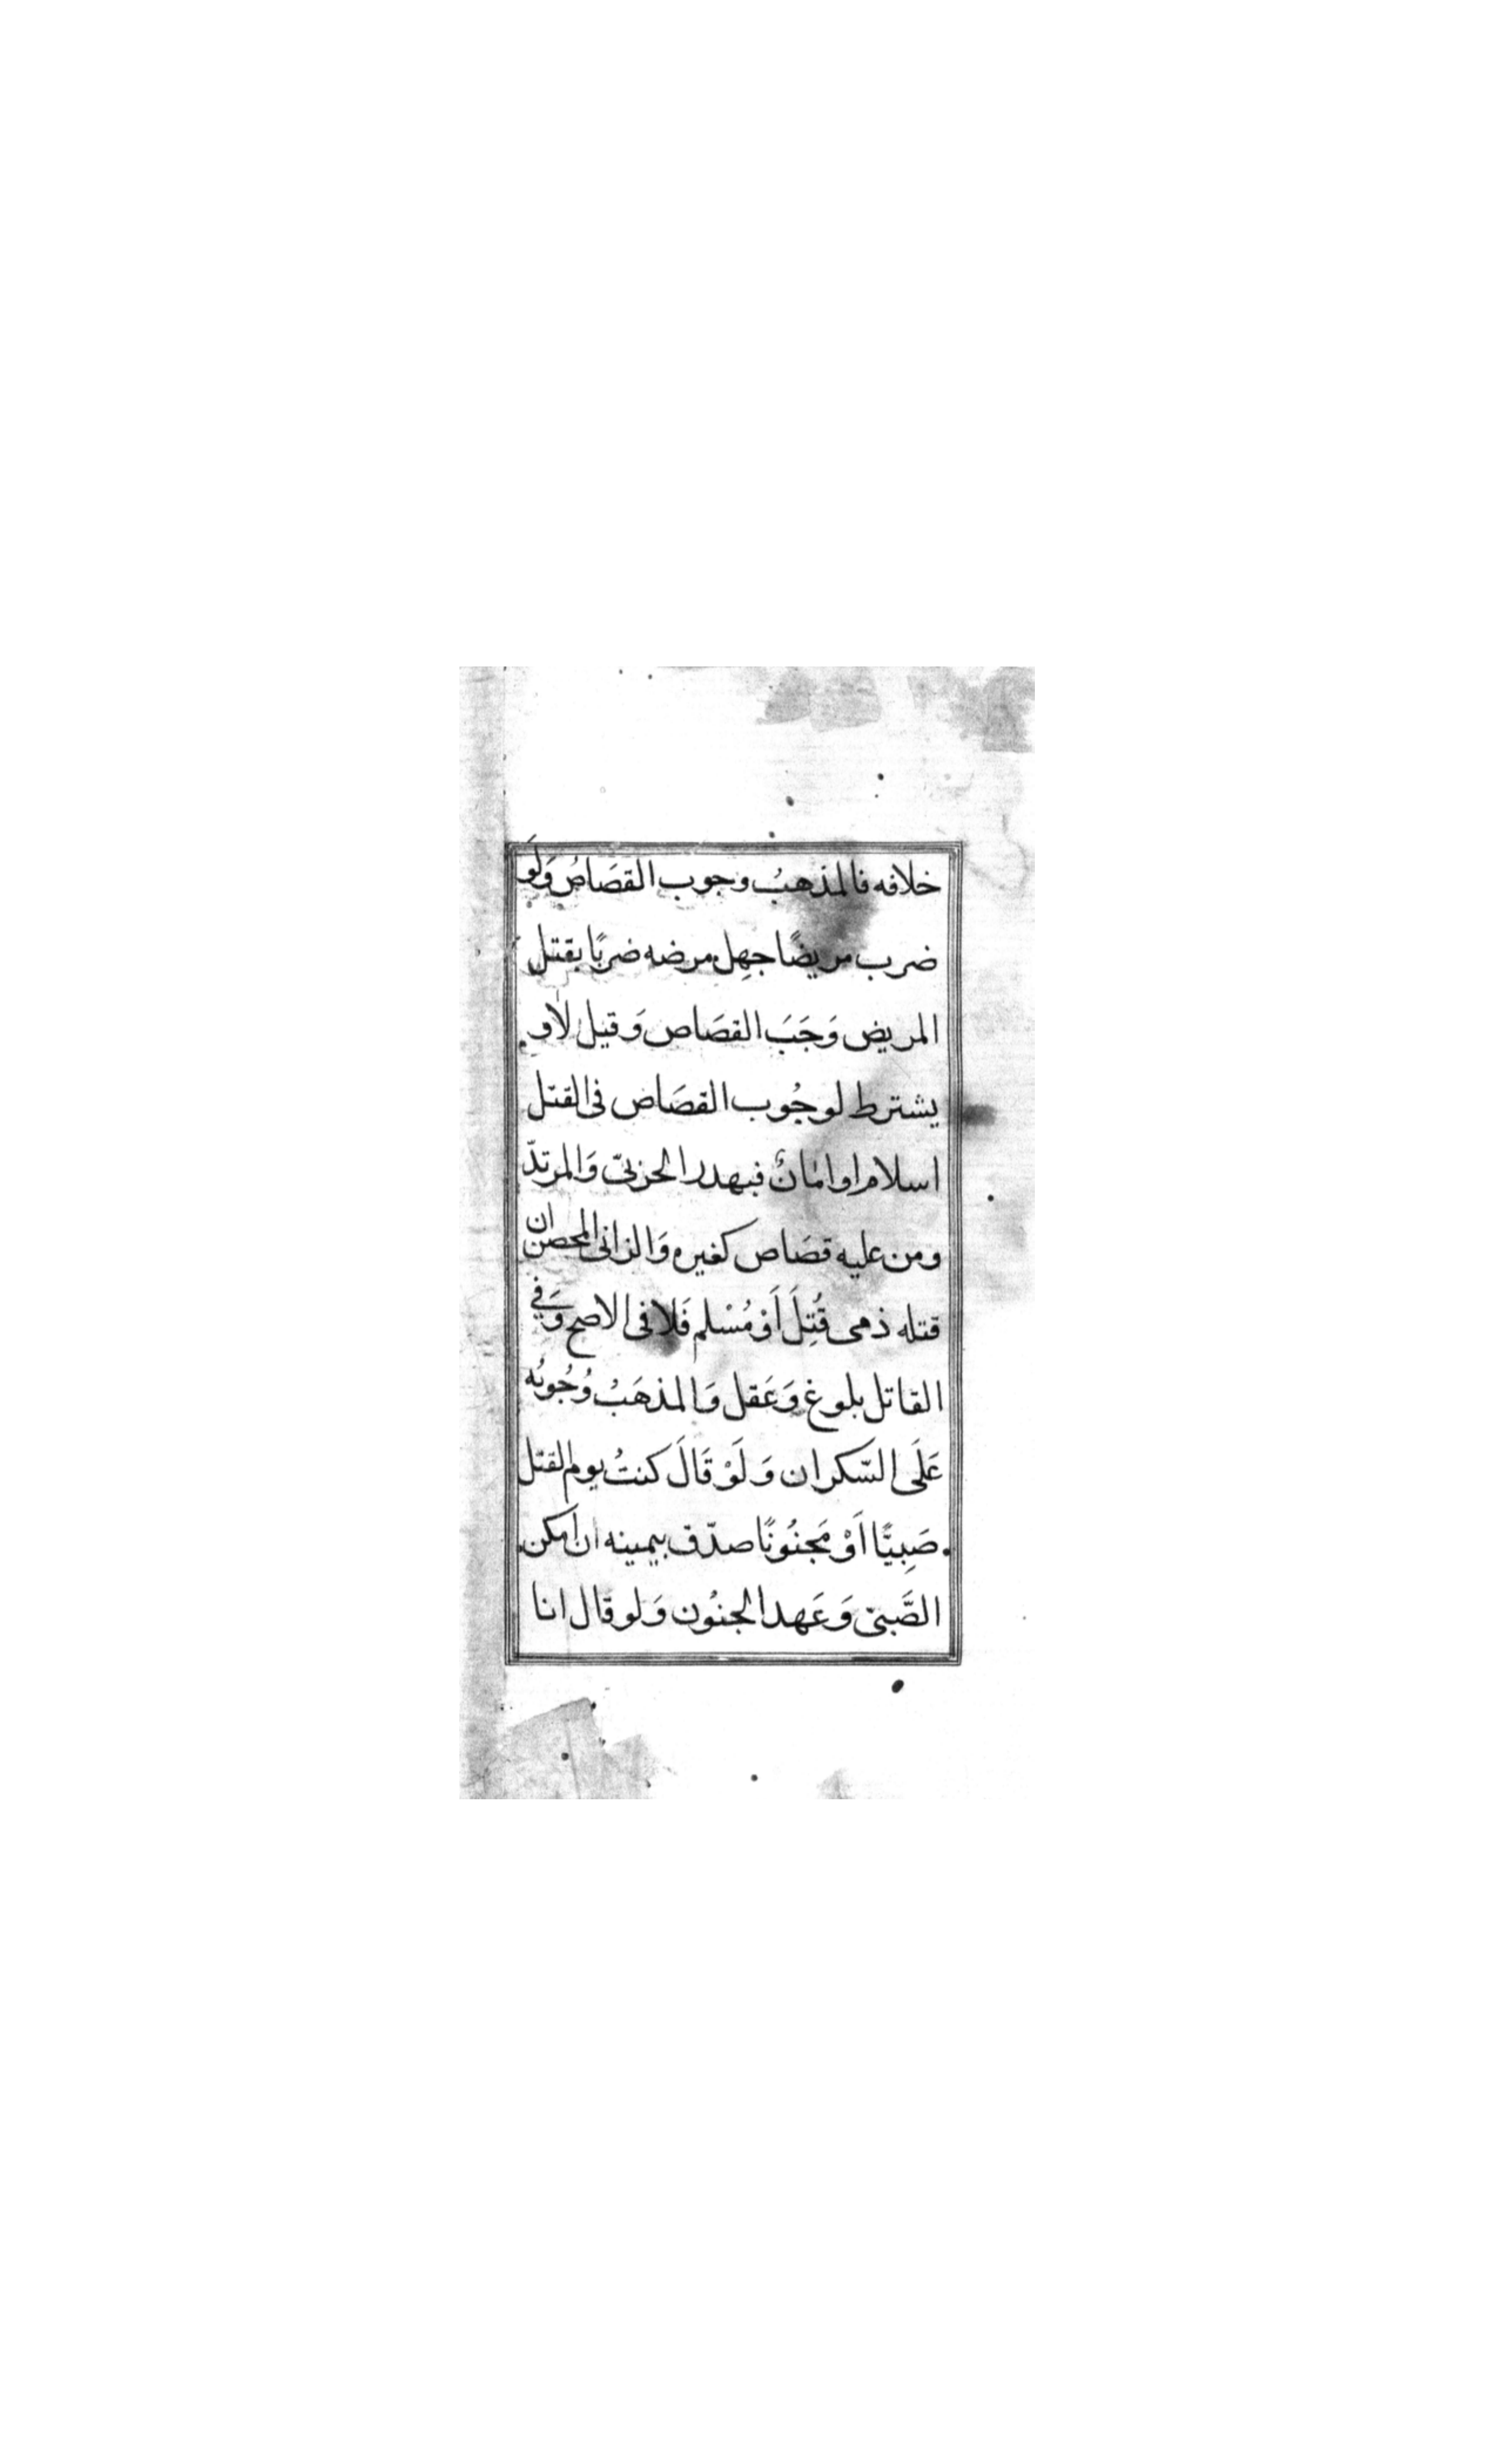 خلافه فالمذهبُ وجوب القصَاصُ وَلَو
ضرب مريضًا جهِل مرضه ضربًا يقتل
المريض وَجَبَ القصَاص وَقيل لا و
يشترط لوجُوب القصَاص فى القتل
اسلام او امانٌ فيهدر الحربىّ وَالمرتدّ
ومن عليه قصَاص كغيره وَالزانى المحصن ان
قتله ذمى قُتِلَ اَوْ مُسْلم فَلا فى الاصح وَفي
القاتل بلوغ وَعَقل وَالمذهَبُ وُجُوبُه
عَلَى السّكران وَلَوْ قَالَ كنتُ يوم القتل
صَبِيًّا اَوْ مَجنُونًا صدّق بيمينه ان اَمكن
الصَّبىّ وَعَهد الجنُون وَلو قال انا